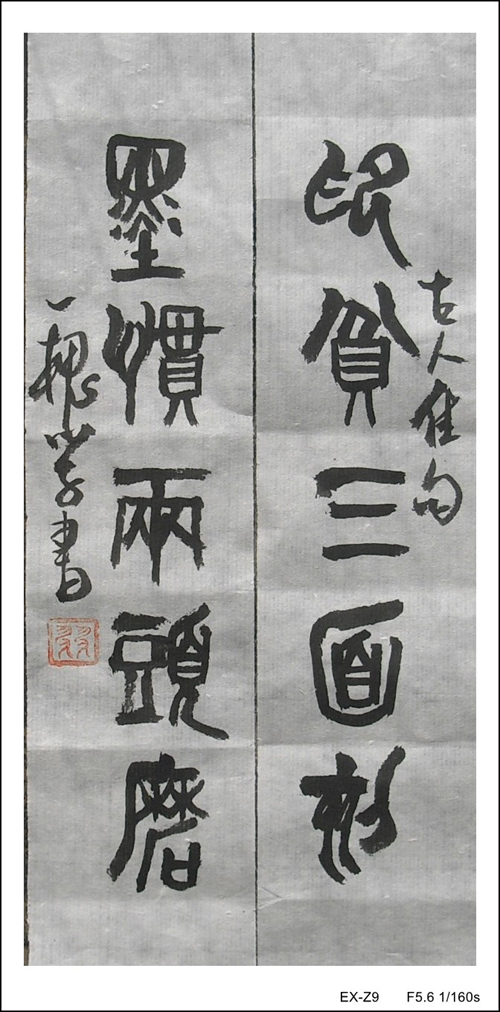 印貧三面刻
古人佳句
墨慣兩頭磨
一槐学書
EX-Z9 F5.6 1/160s